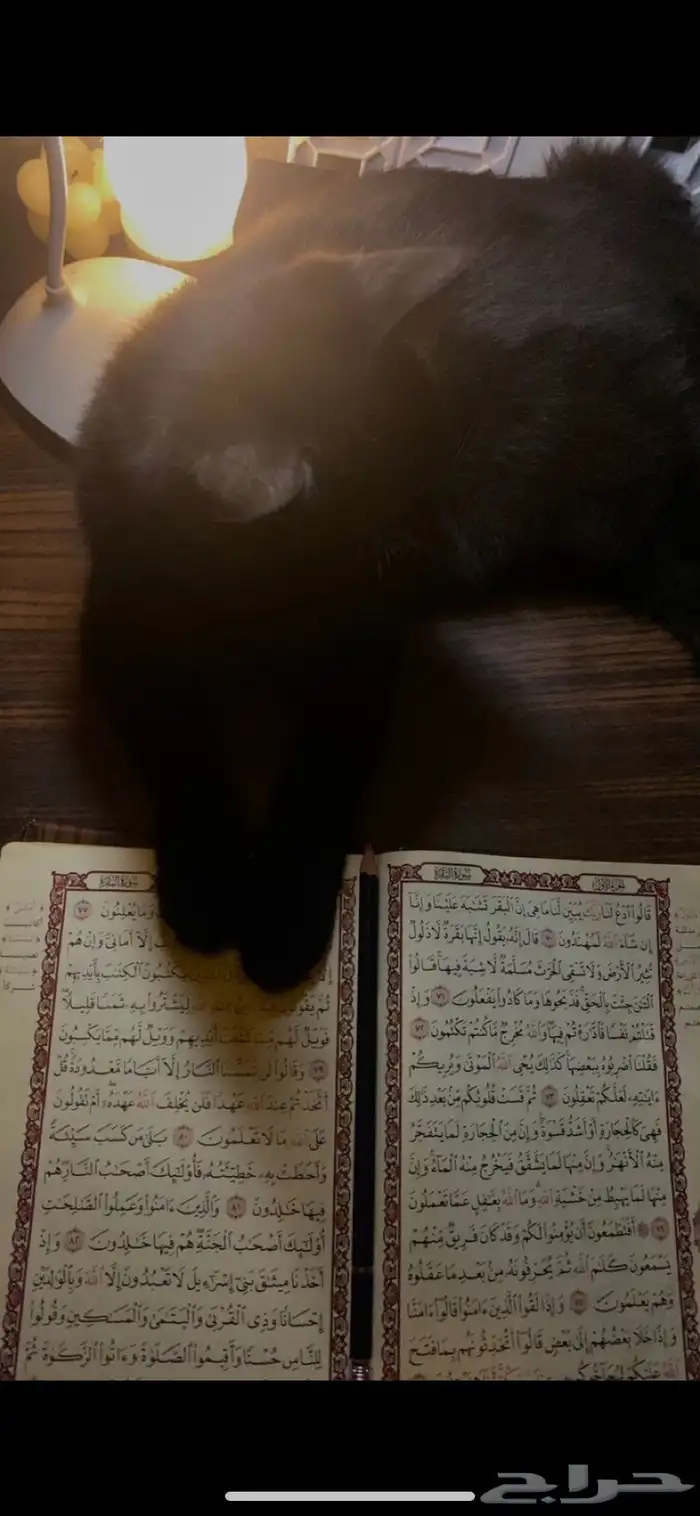 الجزء الأول
سورة البقرة
قالوا ادع لنا ربك يبين لنا ما هي إن البقر تشابه علينا وإنا
إن شاء الله لمهتدون ٧٠ قال إنه يقول إنها بقرة لا ذلول
تثير الأرض ولا تسقي الحرث مسلمة لا شية فيها قالوا
الئن جئت بالحق فذبحوها وما كادوا يفعلون ٧١ وإذ
قتلتم نفسا فادارأتم فيها والله مخرج ما كنتم تكتمون ٧٢
فقلنا اضربوه ببعضها كذلك يحي الله الموتى ويريكم
ءايته لعلكم تعقلون ٧٣ ثم قست قلوبكم من بعد ذلك
فهي كالحجارة أو أشد قسوة وإن من الحجارة لما يتفجر
منه الأنهر وإن منها لما يشقق فيخرج منه الماء وإن
منها لما يهبط من خشية الله وما الله بغفل عما تعملون
٧٤ أفتطمعون أن يؤمنوا لكم وقد كان فريق منهم
يسمعون كلم الله ثم يحرفونه من بعد ما عقلوه
وهم يعلمون ٧٥ وإذا لقوا الذين ءامنوا قالوا ءامنا
وإذا خلا بعضهم إلى بعض قالوا أتحدثونهم بما فتح
الله عليكم ليحاجوكم
سورة البقرة
وما يعلنون ٧٧
إلا أماني وإن هم
يكتبون الكتب بأيديهم
ثم يقولون ليشتروا به ثمنا قليلا
فويل لهم مما كتبت أيديهم وويل لهم مما يكسبون
٧٩ وقالوا لن تمسنا النار إلا أياما معدودة قل
أتخذتم عند الله عهدا فلن يخلف الله عهده أم تقولون
على الله ما لا تعلمون ٨٠ بلى من كسب سيئة
وأحطت به خطيئته فأولئك أصحب النار هم
فيها خلدون ٨١ والذين ءامنوا وعملوا الصلحت
أولئك أصحب الجنة هم فيها خلدون ٨٢ وإذ
أخذنا ميثق بني إسرءيل لا تعبدون إلا الله وبالولدين
إحسانا وذي القربى واليتمى والمسكين وقولوا
للناس حسنا وأقيموا الصلوة وءاتوا الزكوة ثم
حراج